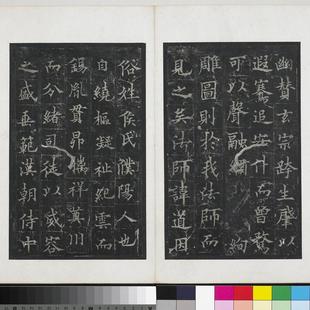 幽贊玄宗跨生肇以
遐騫追安什而曾騖
可以聲融絢
雕圖則於我法師而
見之矣法師諱道因
俗姓侯氏濮陽人也
自繞樞凝祉紀雲而
錫胤貫昴摛祥冀川
而分緒司徒以威容
之盛垂範漢朝侍中